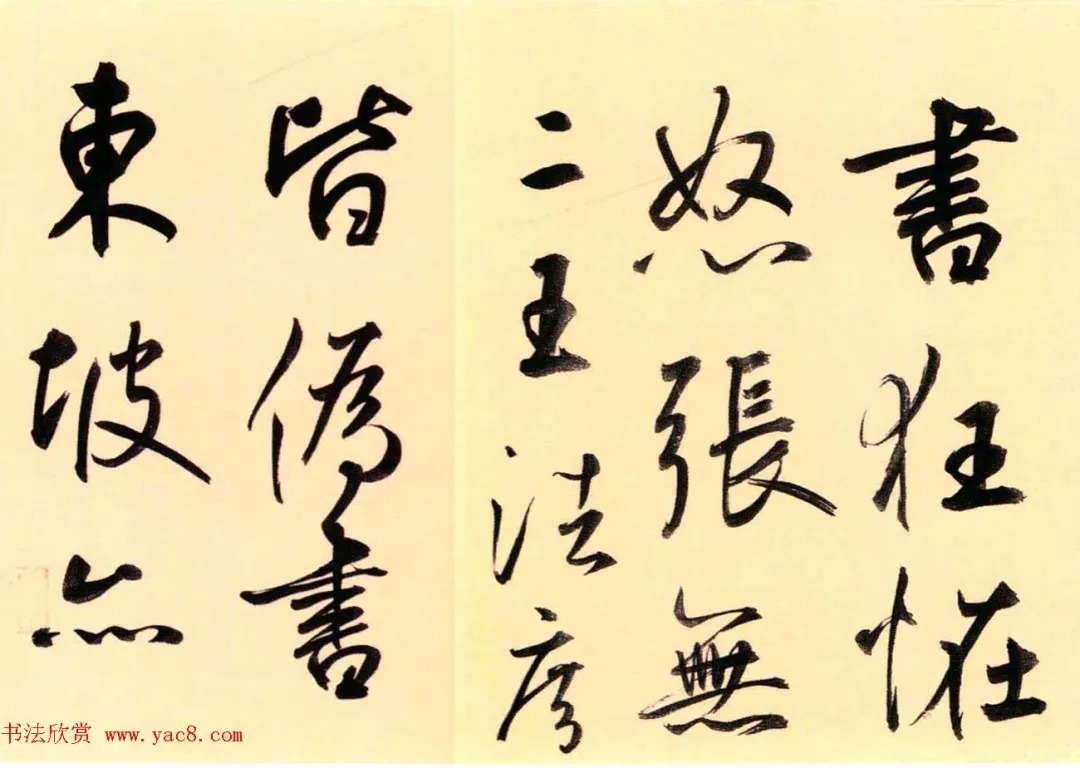 書狂怪
怒張無
二王法度
皆偽書
東坡亦
书法欣赏 www.yac8.com